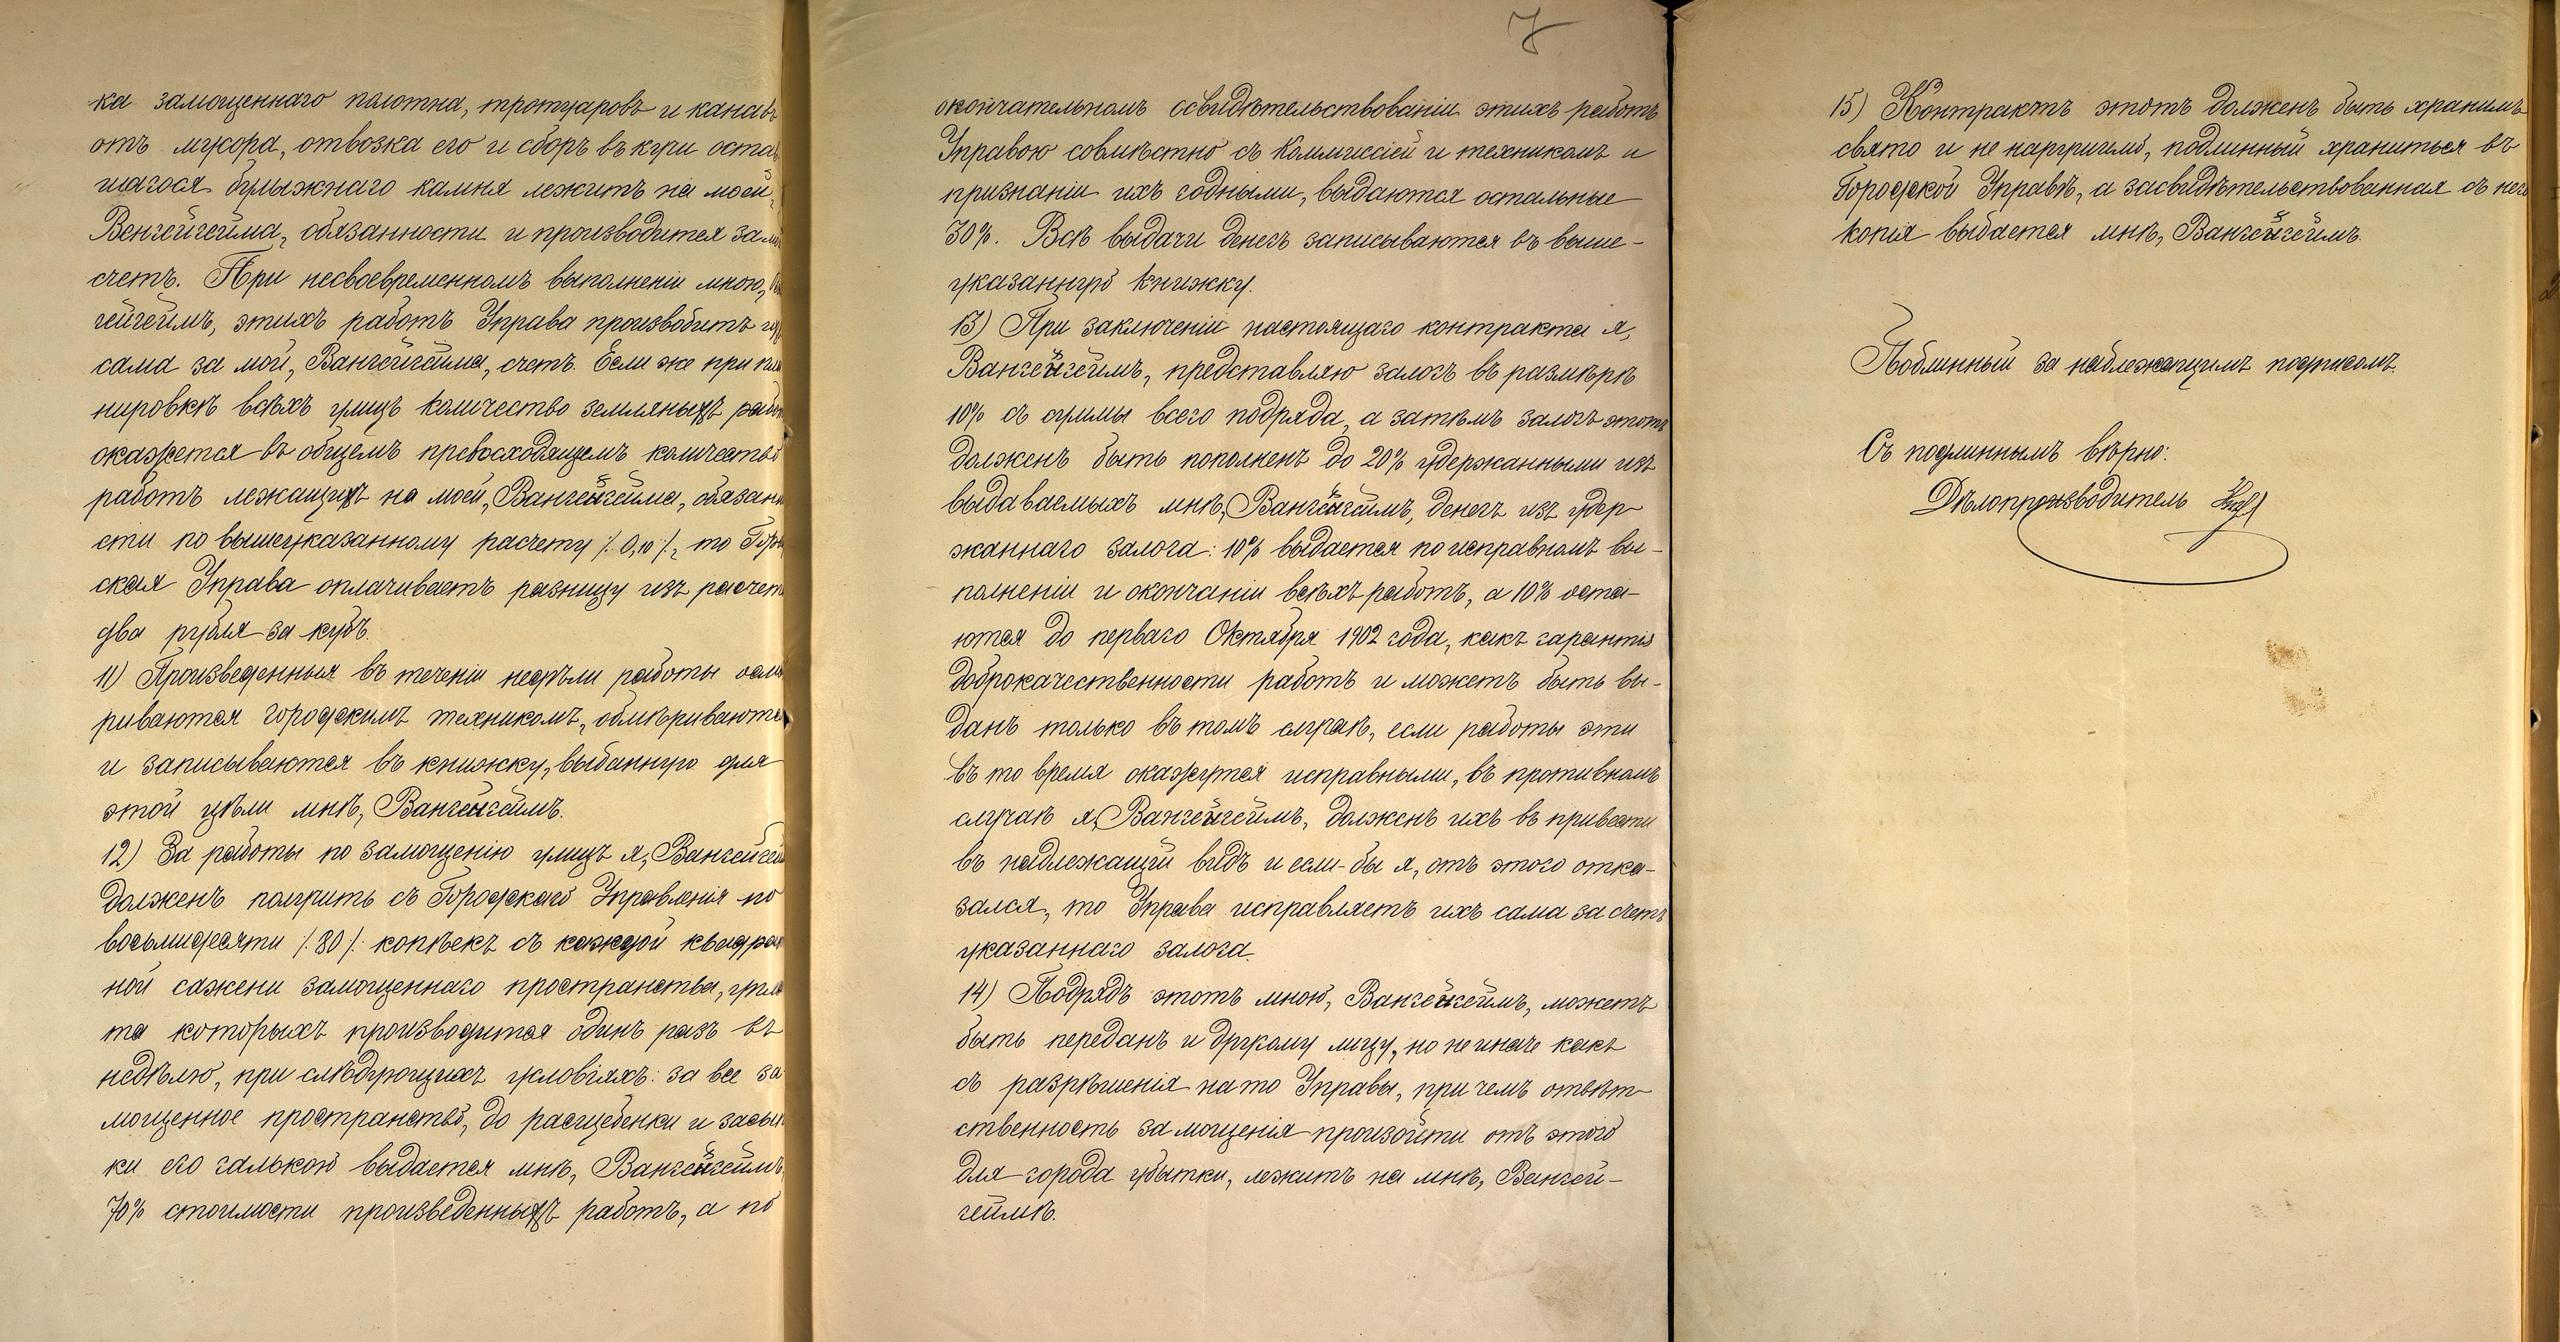 ка замощеннаго полотна, тротуаровъ и канавъ
отъ мусора, отвозка его и сборъ въ кучи оста
шагося булыжнаго камня лежитъ на моей,
Венгейгейма, обязанности и производится за
счетъ. При несвоевременномъ выполненіи мною,
гейгеймъ, этихъ работъ Управа производитъ
сама за мой, Вангейгейма, счетъ. Если же при пла
нировкѣ всѣхъ улицъ количество земляныхъ рабо
окажется въ общемъ превосходящемъ количество
работъ лежащихъ на моей, Вангейгейма, обязан
сти по вышеуказанному расчету /. 0,10 /., то Горо
ская Управа оплачиваетъ разницу изъ расчет
два рубля за кубъ.
11) Произведенныя въ теченіи недѣли работы осма
риваются городскимъ техникомъ, обмѣриваются
и записываются въ книжку, выданную для
этой цѣли мнѣ, Вангейгеймъ.
12) За работы по замощенію улицъ я, Вангейгей
долженъ получить съ Городскаго Управленія по
восьмидесяти /. 80 /. копѣекъ съ каждой квадра
ной сажени замощеннаго пространства,
та которыхъ производится одинъ разъ въ
недѣлю, при слѣдующихъ условіяхъ: за все за
мощенное пространство, до расщебенки и засып
ки его галькой выдается мнѣ, Вангейгеймъ,
70% стоимости произведенныхъ работъ, а по
7
окончательномъ освидѣтельствованіи этихъ работъ
Управою совмѣстно съ Коммиссіей и техникомъ и
признаніи ихъ годными, выдаются остальные
30%. Всѣ выдачи денегъ записываются въ выше-
указанную книжку.
13) При заключеніи настоящаго контракта я,
Вангейгеймъ, представляю залогъ въ размѣрѣ
10% съ суммы всего подряда, а затѣмъ залогъ этотъ
долженъ быть пополненъ до 20% удержанными изъ
выдаваемыхъ мнѣ, Вангейгеймъ, денегъ изъ удер-
жаннаго залога: 10% выдается по исправномъ вы-
полненіи и окончаніи всѣхъ работъ, а 10% оста-
ются до перваго Октября 1902 года, какъ гарантія
доброкачественности работъ и можетъ быть вы-
данъ только въ томъ случаѣ, если работы эти
въ то время окажутся исправными, въ противномъ
случаѣ я, Вангейгеймъ, долженъ ихъ въ привести
въ надлежащій видъ и если-бы я, отъ этого отка-
зался, то Управа исправляетъ ихъ сама за счетъ
указаннаго залога.
14) Подрядъ этотъ мною, Вангейгеймъ, можетъ
быть переданъ и другому лицу, но не иначе какъ
съ разрѣшенія на то Управы, при чемъ отвѣт-
ственность за могущенія произойти отъ этого
для города убытки, лежитъ на мнѣ, Вангей-
геймѣ.
15) Контрактъ этотъ долженъ быть хранимъ
свято и не нарушимо, подлинный храниться въ
Городской Управѣ, а засвидѣтельствованная съ него
копія выдается мнѣ, Вангейгеймъ.
Подлинный за надлежащимъ подписомъ.
Съ подлиннымъ вѣрно:
Дѣлопроизводитель